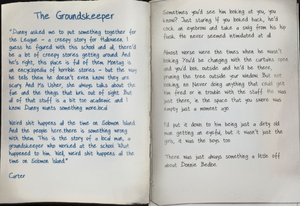 The Groundskeeper
"Danny asked me to put something together for
the League - a creepy story for Halloween. I
guess he figured with this school and all, there'd
be a lot of creepy stories getting around. And
he's right, this place is full of them. Montoy is
an encyclopedia of horrible stories - but the way
he tells them he doesn't even know they are
scary. And Ms. Usher, she always talks about the
fun and the things that lurk out of sight. But
all of that stuff is a bit too academic and I
know Danny wants something more real.
Weird shit happens all the time on Solomon Island.
And the people here...there is something wrong
with them. This is the story of a real man, a
groundskeeper who worked at the school. What
happened to him. Well, weird shit happens all the
time on Solomon Island."
Carter
Sometimes you'd see him looking at you, you
know? Just staring. If you looked back, he'd
cock an eyebrow and take a swig from his hip
flask. He never seemed intimidated at all.
Almost worse were the times when he wasn't
looking. You'd be changing with the curtains open
and you'd look outside and he'd be there,
pruning the tree outside your window. But not
looking, he never doing anything that could get
him fired or in trouble with the staff. He was
just there, in the space that you swore was
empty just a moment ago.
I'd put it down to him being just a dirty old
man getting an eyeful, but it wasn't just the
girls, it was the boys too.
There was just always something a little off
about Donnie Bedbie.